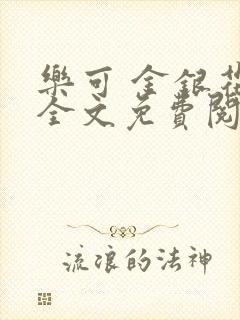 樂可 金銀花
全文免費閱
流浪的法神